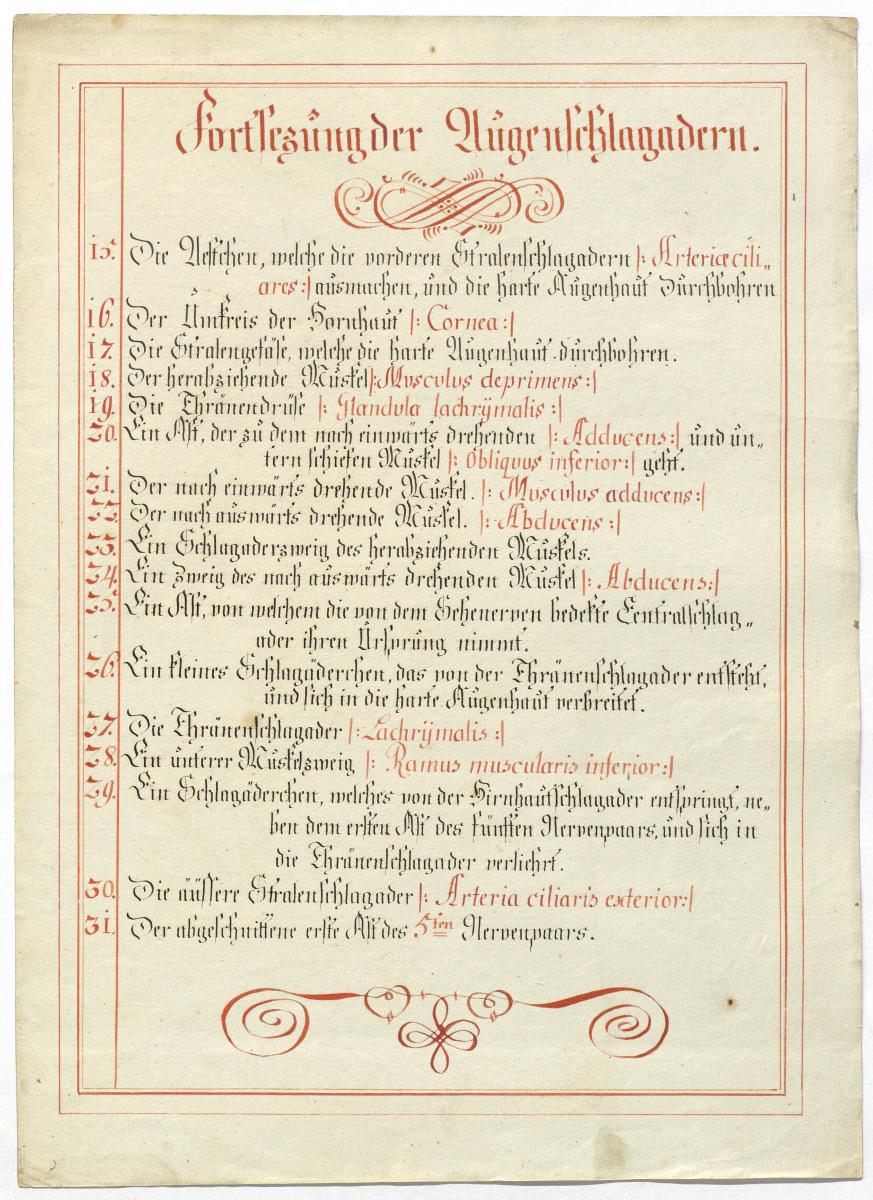 Fortsezung der Augenschlagadern.
15. Die Aestchen, welche die vorderen Stralenschlagadern |: Arteriæ cili„
ares :| ausmachen, und die harte Augenhaut durchbohren
16. Der Umkreis der Hornhaut |: Cornea :|
17. Die Stralengefäse, welche die harte Augenhaut durchbohren.
18. Der herabziehende Muskel |: Musculus deprimens :|
19. Die Thränendrüse |: Glandula lachrÿmalis :|
20. Ein Ast, der zu dem nach einwärts drehenden |: Adducens :| und un„
tern schiefen Muskel |: Obliquus inferior :| geht.
21. Der nach einwärts drehende Muskel. |: Musculus adducens :|
22. Der nach auswärts drehende Muskel. |: Abducens :|
23. Ein Schlagaderzweig des herabziehenden Muskels.
24. Ein Zweig des nach auswärts drehenden Muskel |: Abducens :|
25. Ein Ast, von welchem die von dem Sehenerven bedekte Centralschlag„
ader ihren Ursprung nimmt.
26. Ein kleines Schlagäderchen, das von der Thränenschlagader entsteht,
und sich in die harte Augenhaut verbreitet.
27. Die Thränenschlagader |: Lachrÿmalis :|
28. Ein unterer Muskelzweig |: Ramus muscularis inferior :|
29. Ein Schlagäderchen, welches von der Hirnhautschlagader entspringt, ne„
ben dem ersten Ast des fünften Nervenpaars, und sich in
die Thränenschlagader verliehrt.
30. Die äüssere Stralenschlagader |: Arteria ciliaris exterior :|
31. Der abgeschnittene erste Ast des 5ten Nervenpaars.